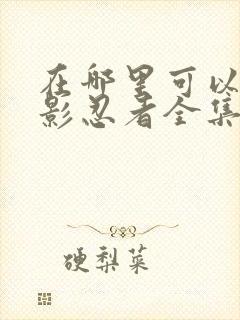 在哪里可以
影忍者全集
硬梨菜